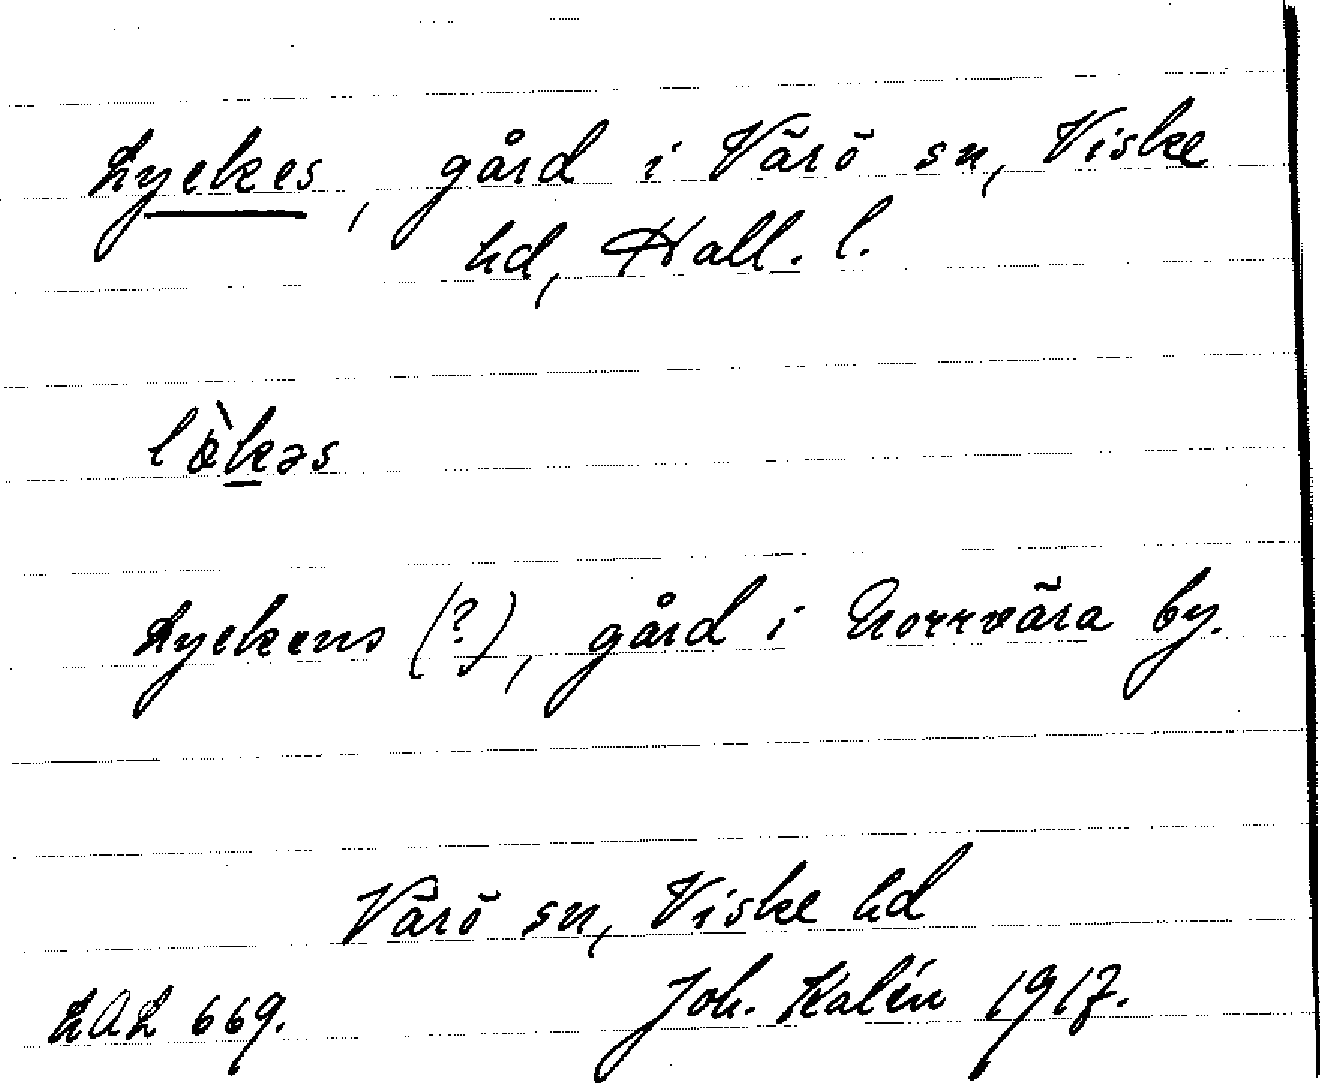 Lyckes, gård i Värö sn, Viske
hd, Hall. l.
Lyckens (?), gård i Norrvära by.
Värö sn, Viske hd
LAL 669. Joh. Kalén 1917.